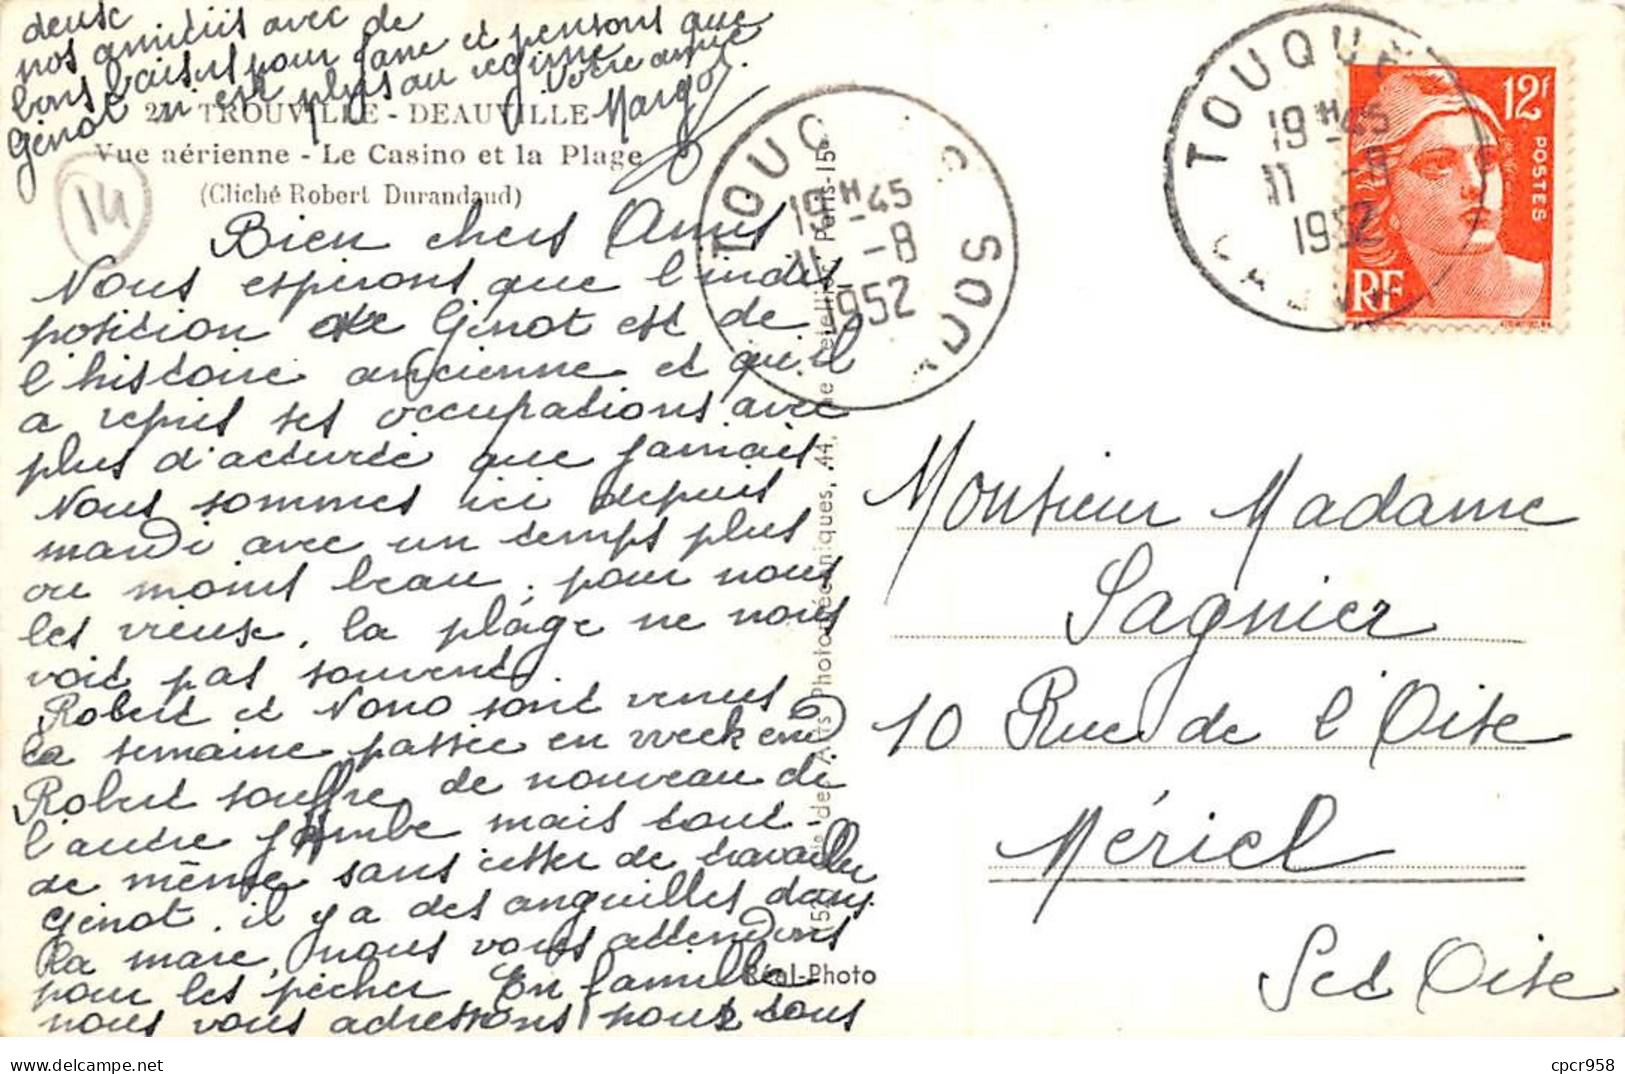 deux
nos amitiés avec de
bons baisers pour Jane et pensons que
Génot n'est plus au régime
Votre amie
Margo
2 TROUVILLE - DEAUVILLE
Vue aérienne - Le Casino et la Plage
(Cliché Robert Durandaud)
14
Bien chers Amis
Nous espérons que l'indis
position de Génot est de
l'histoire ancienne et qu'il
a repris ses occupations avec
plus d'activité que jamais
Nous sommes ici depuis
mardi avec un temps plus
ou moins beau, pour nous
les vieux, la plage ne nous
voit pas souvent
Robert et Nono sont venus
la semaine passée en weekend
Robert souffre de nouveau de
l'autre jambe mais tout-
de même sans cesser de travailler
Génot, il y a des anguilles dans
la mare, nous vous attendons
pour les pêcher En famille
nous vous adressons pour tous
TOUQUES
19H-45
11 -8
1952
TOUQUES
19H-45
11 -8
1952
CALVADOS
12F
POSTES
RF
Paris-15e
44,
Photomécaniques,
Arts
des
Réal-Photo
Monsieur Madame
Sagnier
10 Rue de l'Oise
Mériel
Set Oise
cpcr958